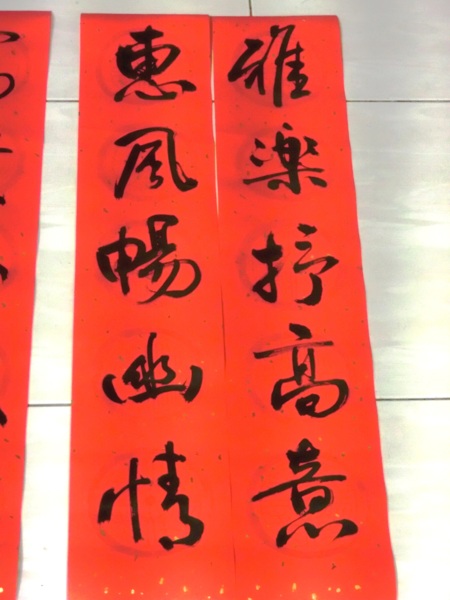 雅樂抒高意
惠風暢幽情